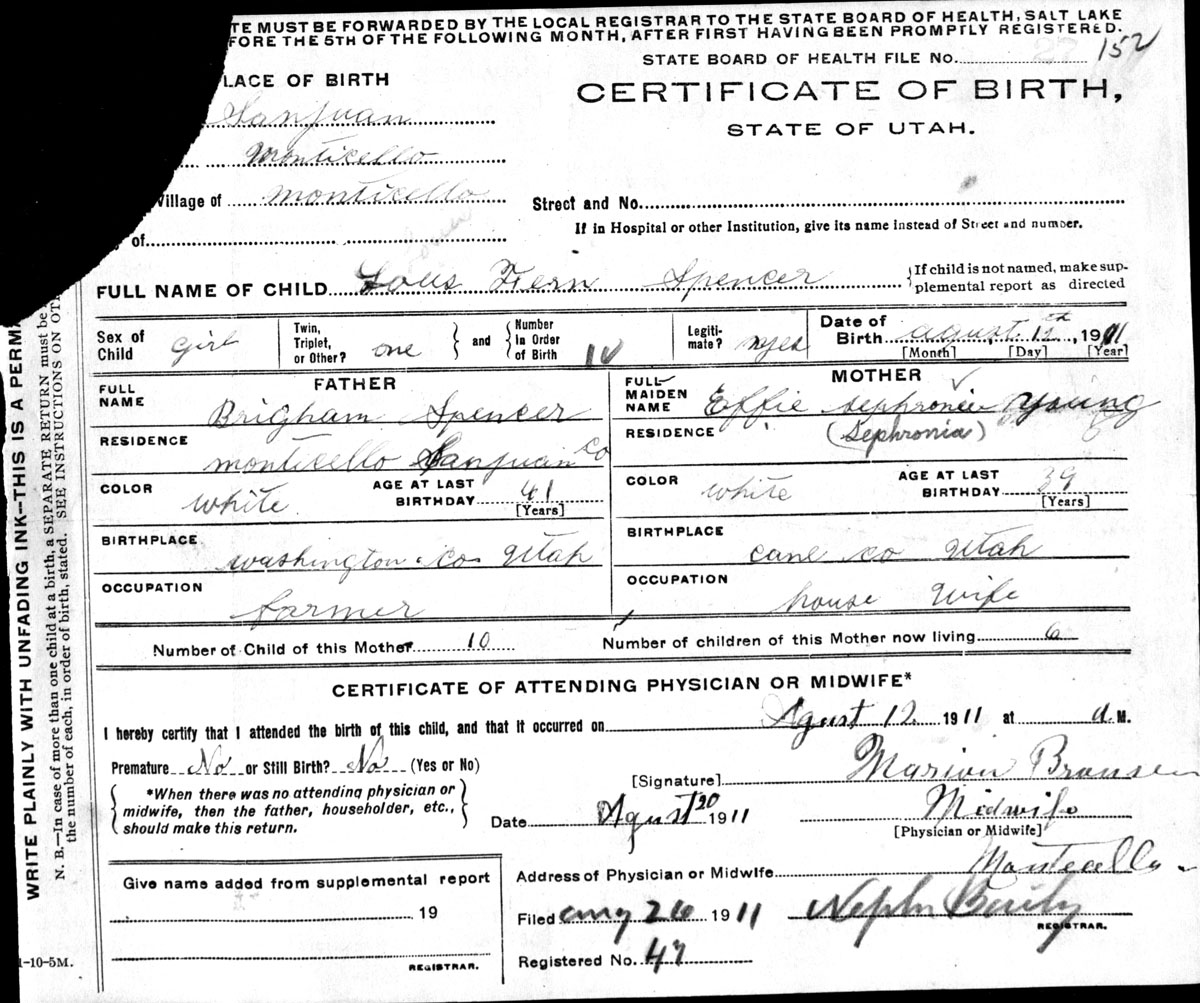 TE MUST BE FORWARDED BY THE LOCAL REGISTRAR TO THE STATE BOARD OF HEALTH, SALT LAKE
FORE THE 5TH OF THE FOLLOWING MONTH, AFTER FIRST HAVING BEEN PROMPTLY REGISTERED.
STATE BOARD OF HEALTH FILE No. 152
LACE OF BIRTH
CERTIFICATE OF BIRTH,
STATE OF UTAH.
Sanjuan
Monticello
Village of monticello
Street and No.
If in Hospital or other Institution, give its name instead of Street and number.
of
FULL NAME OF CHILD Fern Spencer
{If child is not named, make sup-
plemental report as directed
Sex of Child girl
Twin, Triplet, or Other? one
and
Number in Order of Birth 10
Legiti-mate? yes
Date of Birth august. 12th, 1911
[Month] [Day] [Year]
FATHER
MOTHER
FULL NAME Brigham Spencer
FULL MAIDEN NAME Effie sephronie Young
(Sephronia)
RESIDENCE monticello Sanjuan Co
RESIDENCE
COLOR white
AGE AT LAST BIRTHDAY 41 [Years]
COLOR white
AGE AT LAST BIRTHDAY 39 [Years]
BIRTHPLACE washington co Utah
BIRTHPLACE cane co Utah
OCCUPATION farmer
OCCUPATION house Wife
Number of Child of this Mother 10
Number of children of this Mother now living 6
CERTIFICATE OF ATTENDING PHYSICIAN OR MIDWIFE*
I hereby certify that I attended the birth of this child, and that it occurred on Agust 12 1911 at a M.
Premature No or Still Birth? No (Yes or No)
[Signature] Marion Bronsen
*When there was no attending physician or
midwife, then the father, householder, etc.,
should make this return.
Date Agust 20 1911
Midwife
[Physician or Midwife]
Give name added from supplemental report
19
REGISTRAR.
Address of Physician or Midwife Montecello
Filed aug 26 1911 Nephi Baily
REGISTRAR.
Registered No. 47
1-10-5M.
WRITE PLAINLY WITH UNFADING INK—THIS IS A PERMA
N. B.—In case of more than one child at a birth, a SEPARATE RETURN must be
the number of each, in order of birth, stated. SEE INSTRUCTIONS ON OTH